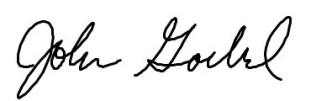 John Goebel